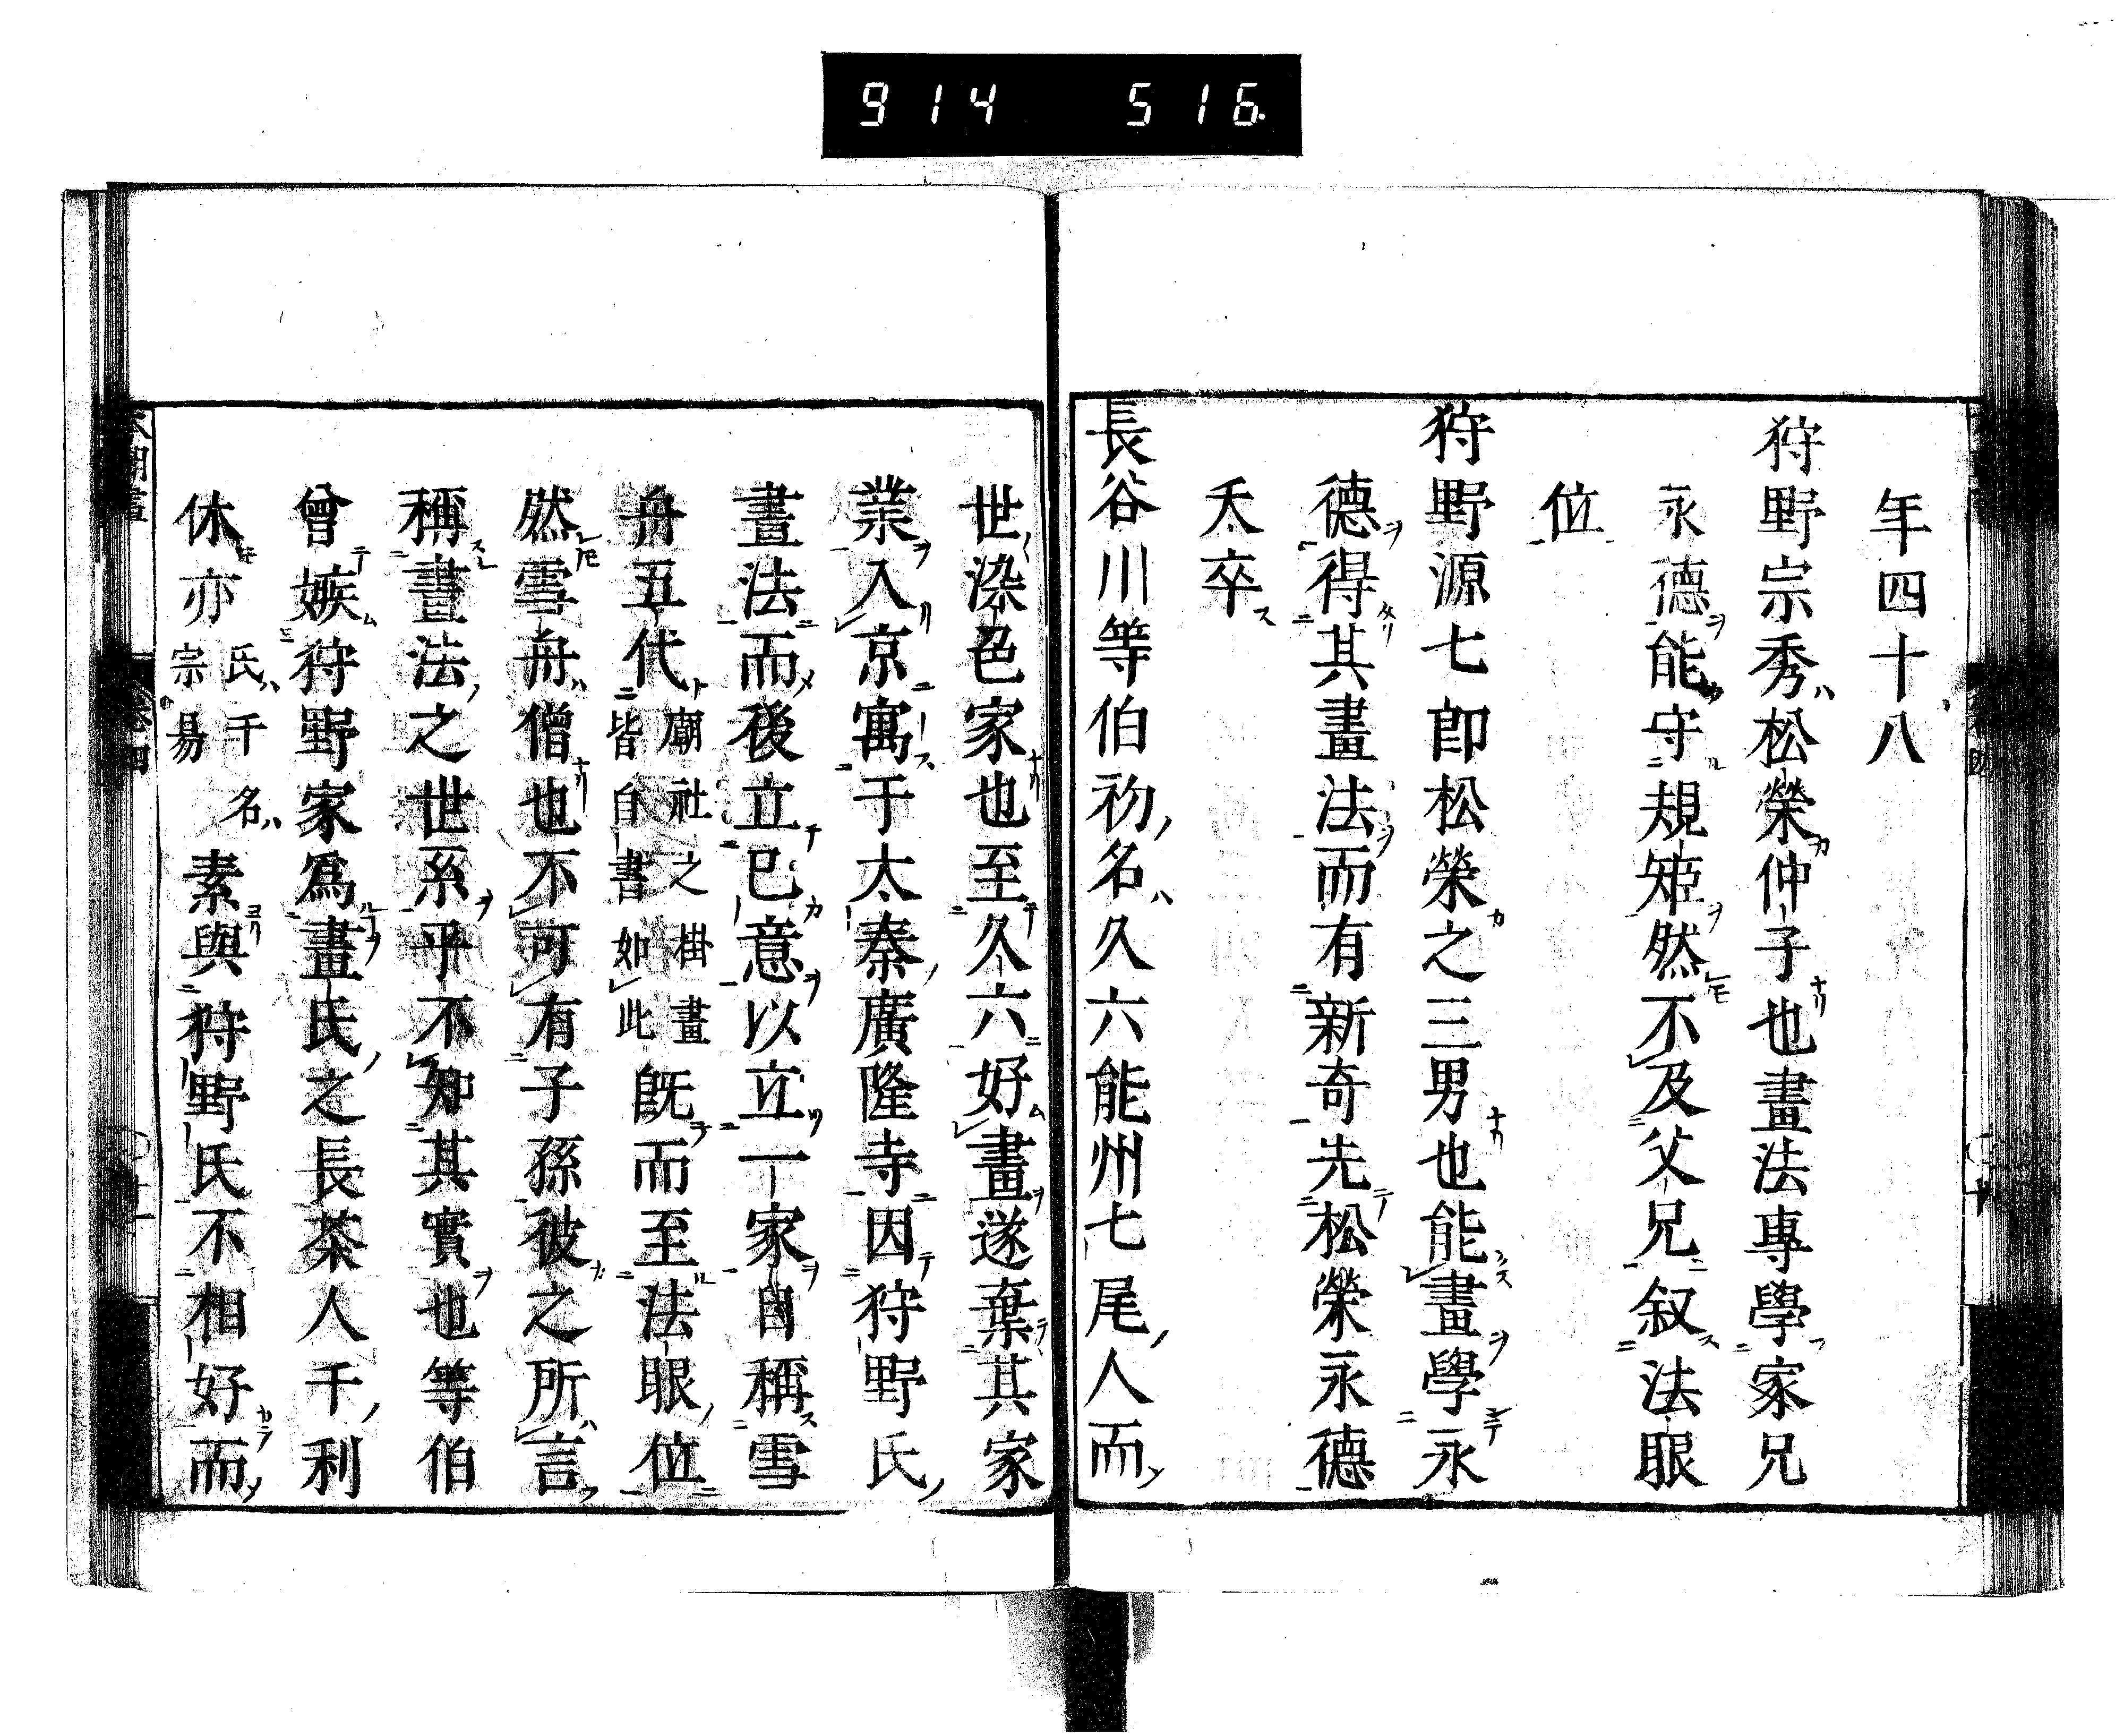 914 516
年四十八
狩野宗秀松榮仲子也畫法專學家兄
永德能守規矩然不及父兄叙法眼
位
狩野源七郎松榮之三男也能畫學永
德得其畫法而有新奇先松榮永德
夭卒
長谷川等伯初名久六能州七尾人而
世染色家也至久六好畫遂棄其家
業入京寓于太秦廣隆寺因狩野氏
畫法而後立己意以立一家自稱雪
舟五代廟社之掛畫皆自書如此既而至法眼位
然雪舟僧也不可有子孫彼之所言
稱畫法之世系乎不知其實也等伯
曾嫉狩野家爲畫氏之長茶人千利
休亦氏千名宗易素與狩野氏不相好而